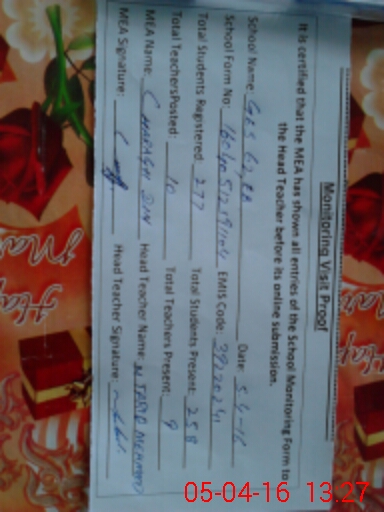 Monitoring Visit Proof
It is certified that the MEA has shown all entries of the School Monitoring Form to
the Head Teacher before its online submission.
School Name: GPS Date: 5-4-16
School Form No: EMIS Code:
Total Students Registered: 277 Total Students Present: 258
Total TeachersPosted: 10 Total Teachers Present: 9
MEA Name: CHARAGH DIN Head Teacher Name: M TARIQ MEHMOOD
MEA Signature: Head Teacher Signature:
05-04-16 13.27